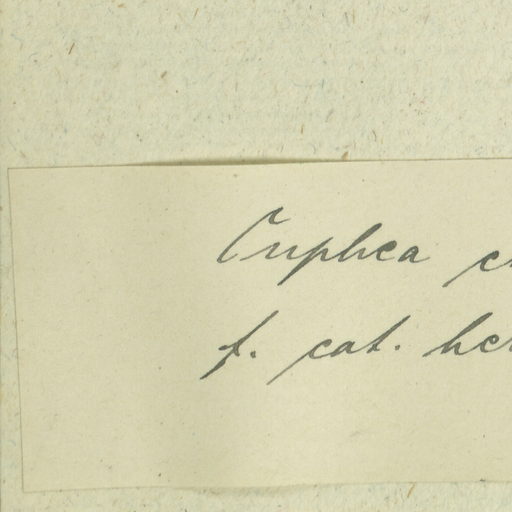 Cuphea
f. cat.